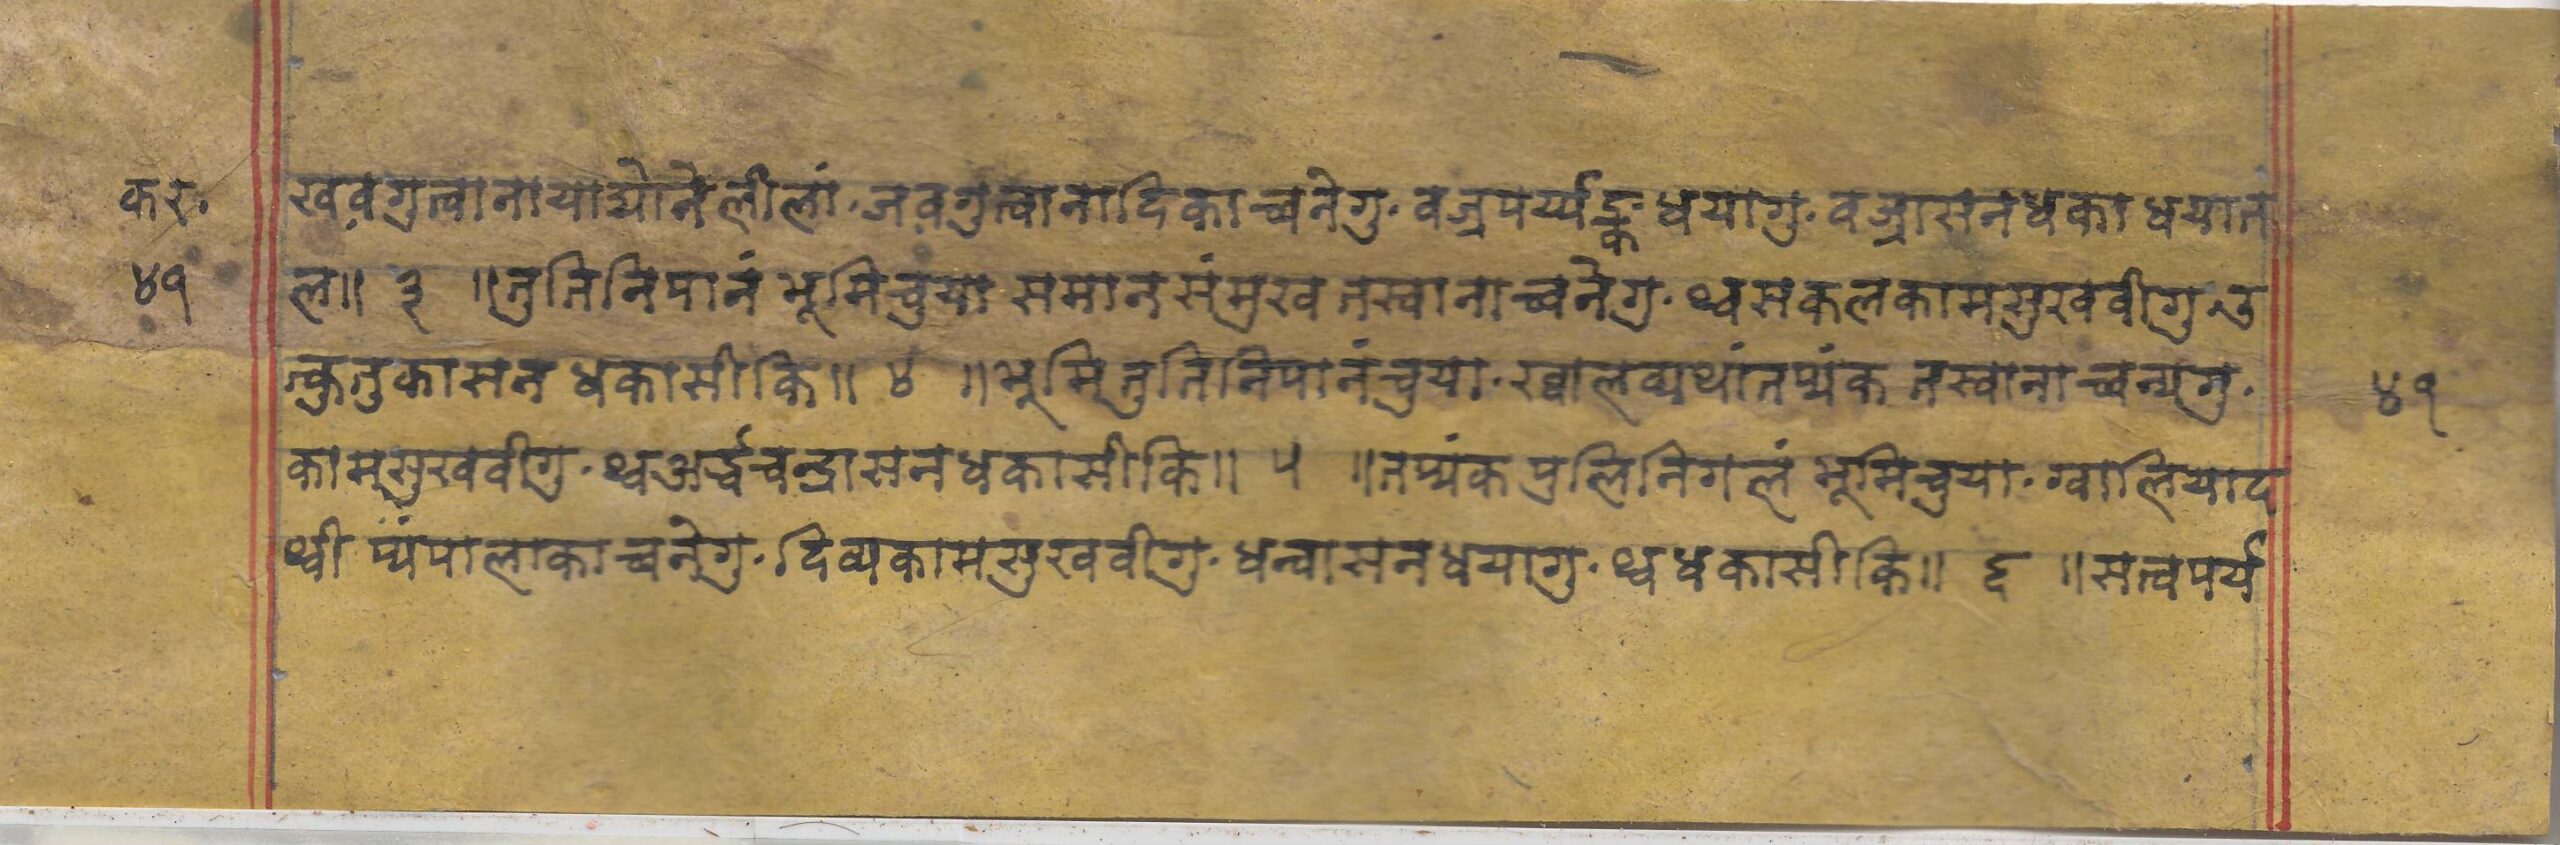 कर. खवगुत्वानायाद्योनेलीलां.जवगुत्वानादिकाच्वनेगु.वज्रपर्य्यङ्कधयागु.वज्रासनधकाधयातु
४१ ल॥ ३ ॥तुतिनिपानं भूमिचुया समानसंमुखतस्वानाच्वनेगु.थ्वसकलकामसुखवीगु.उ
त्कुतुकासनधकासीकि॥ ४ ॥भूमितुतिनिपानंचुया.ख्वालव्यथांतप्यंक तस्वानाच्वन्यगु. ४१
कामसुखवीगु.थ्वअर्द्धचन्द्रासनधकासीकि॥ ५ ॥तप्यंक पुलिनिगलं भूमिचुया.ग्वालियाद
थ्वी प्यंपालाकाच्वनेगु.दिव्यकामसुखवीगु.धन्वासनधयागु.थ्वधकासीकि॥ ६ ॥सत्वपर्य